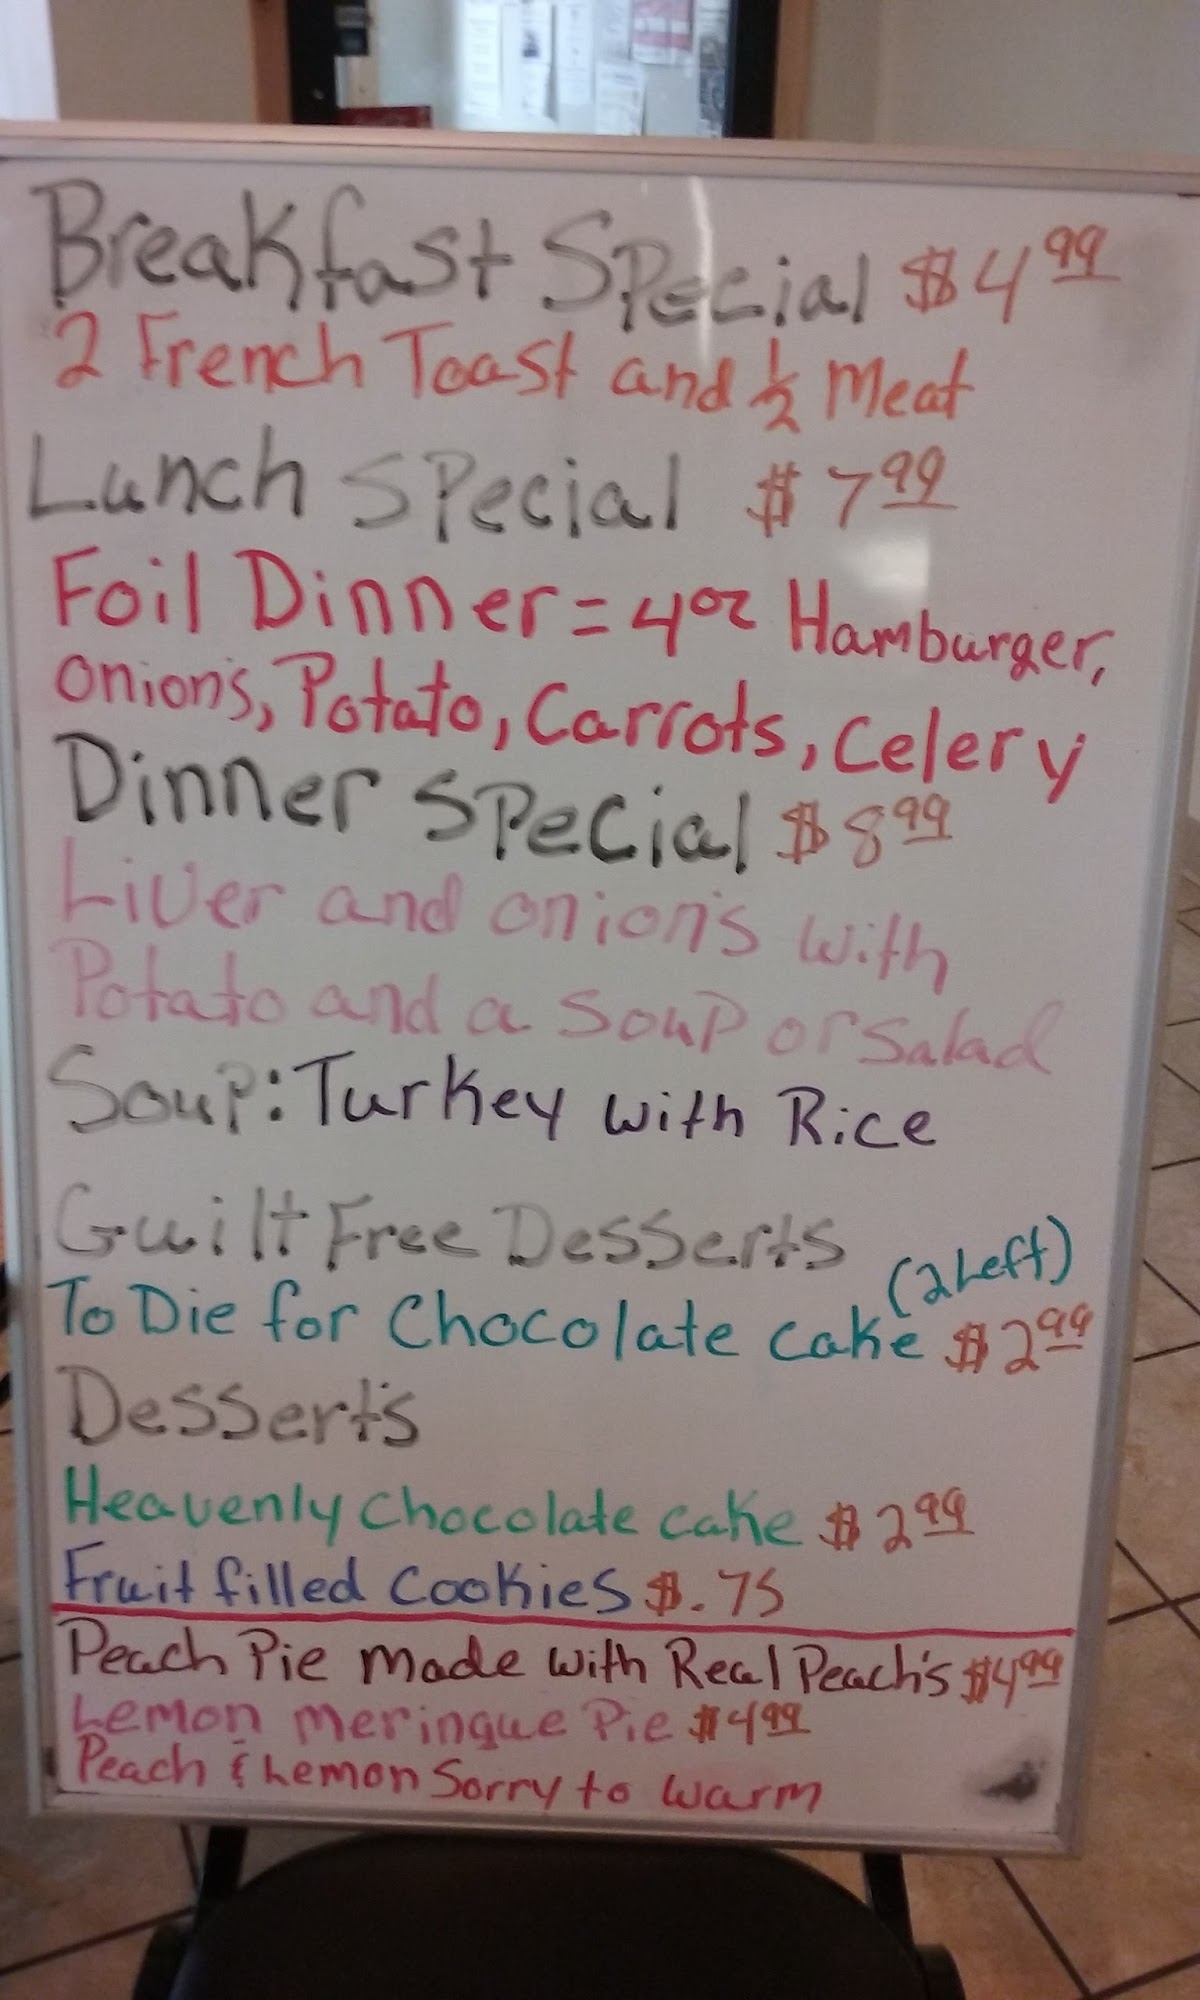 Breakfast Special $4.99
2 French Toast and 1/2 Meat
Lunch Special $7.99
Foil Dinner = 4oz Hamburger,
onion's, Potato, Carrots, Celery
Dinner Special $8.99
Liver and onion's with
Potato and a soup or salad
Soup: Turkey with Rice
Guilt Free Dessert's
(2 Left)
To Die for Chocolate cake $2.99
Dessert's
Heavenly Chocolate cake $2.99
Fruit filled cookies $.75
Peach Pie made with Real Peach's $4.99
Lemon meringue Pie $4.99
Peach & Lemon Sorry to warm